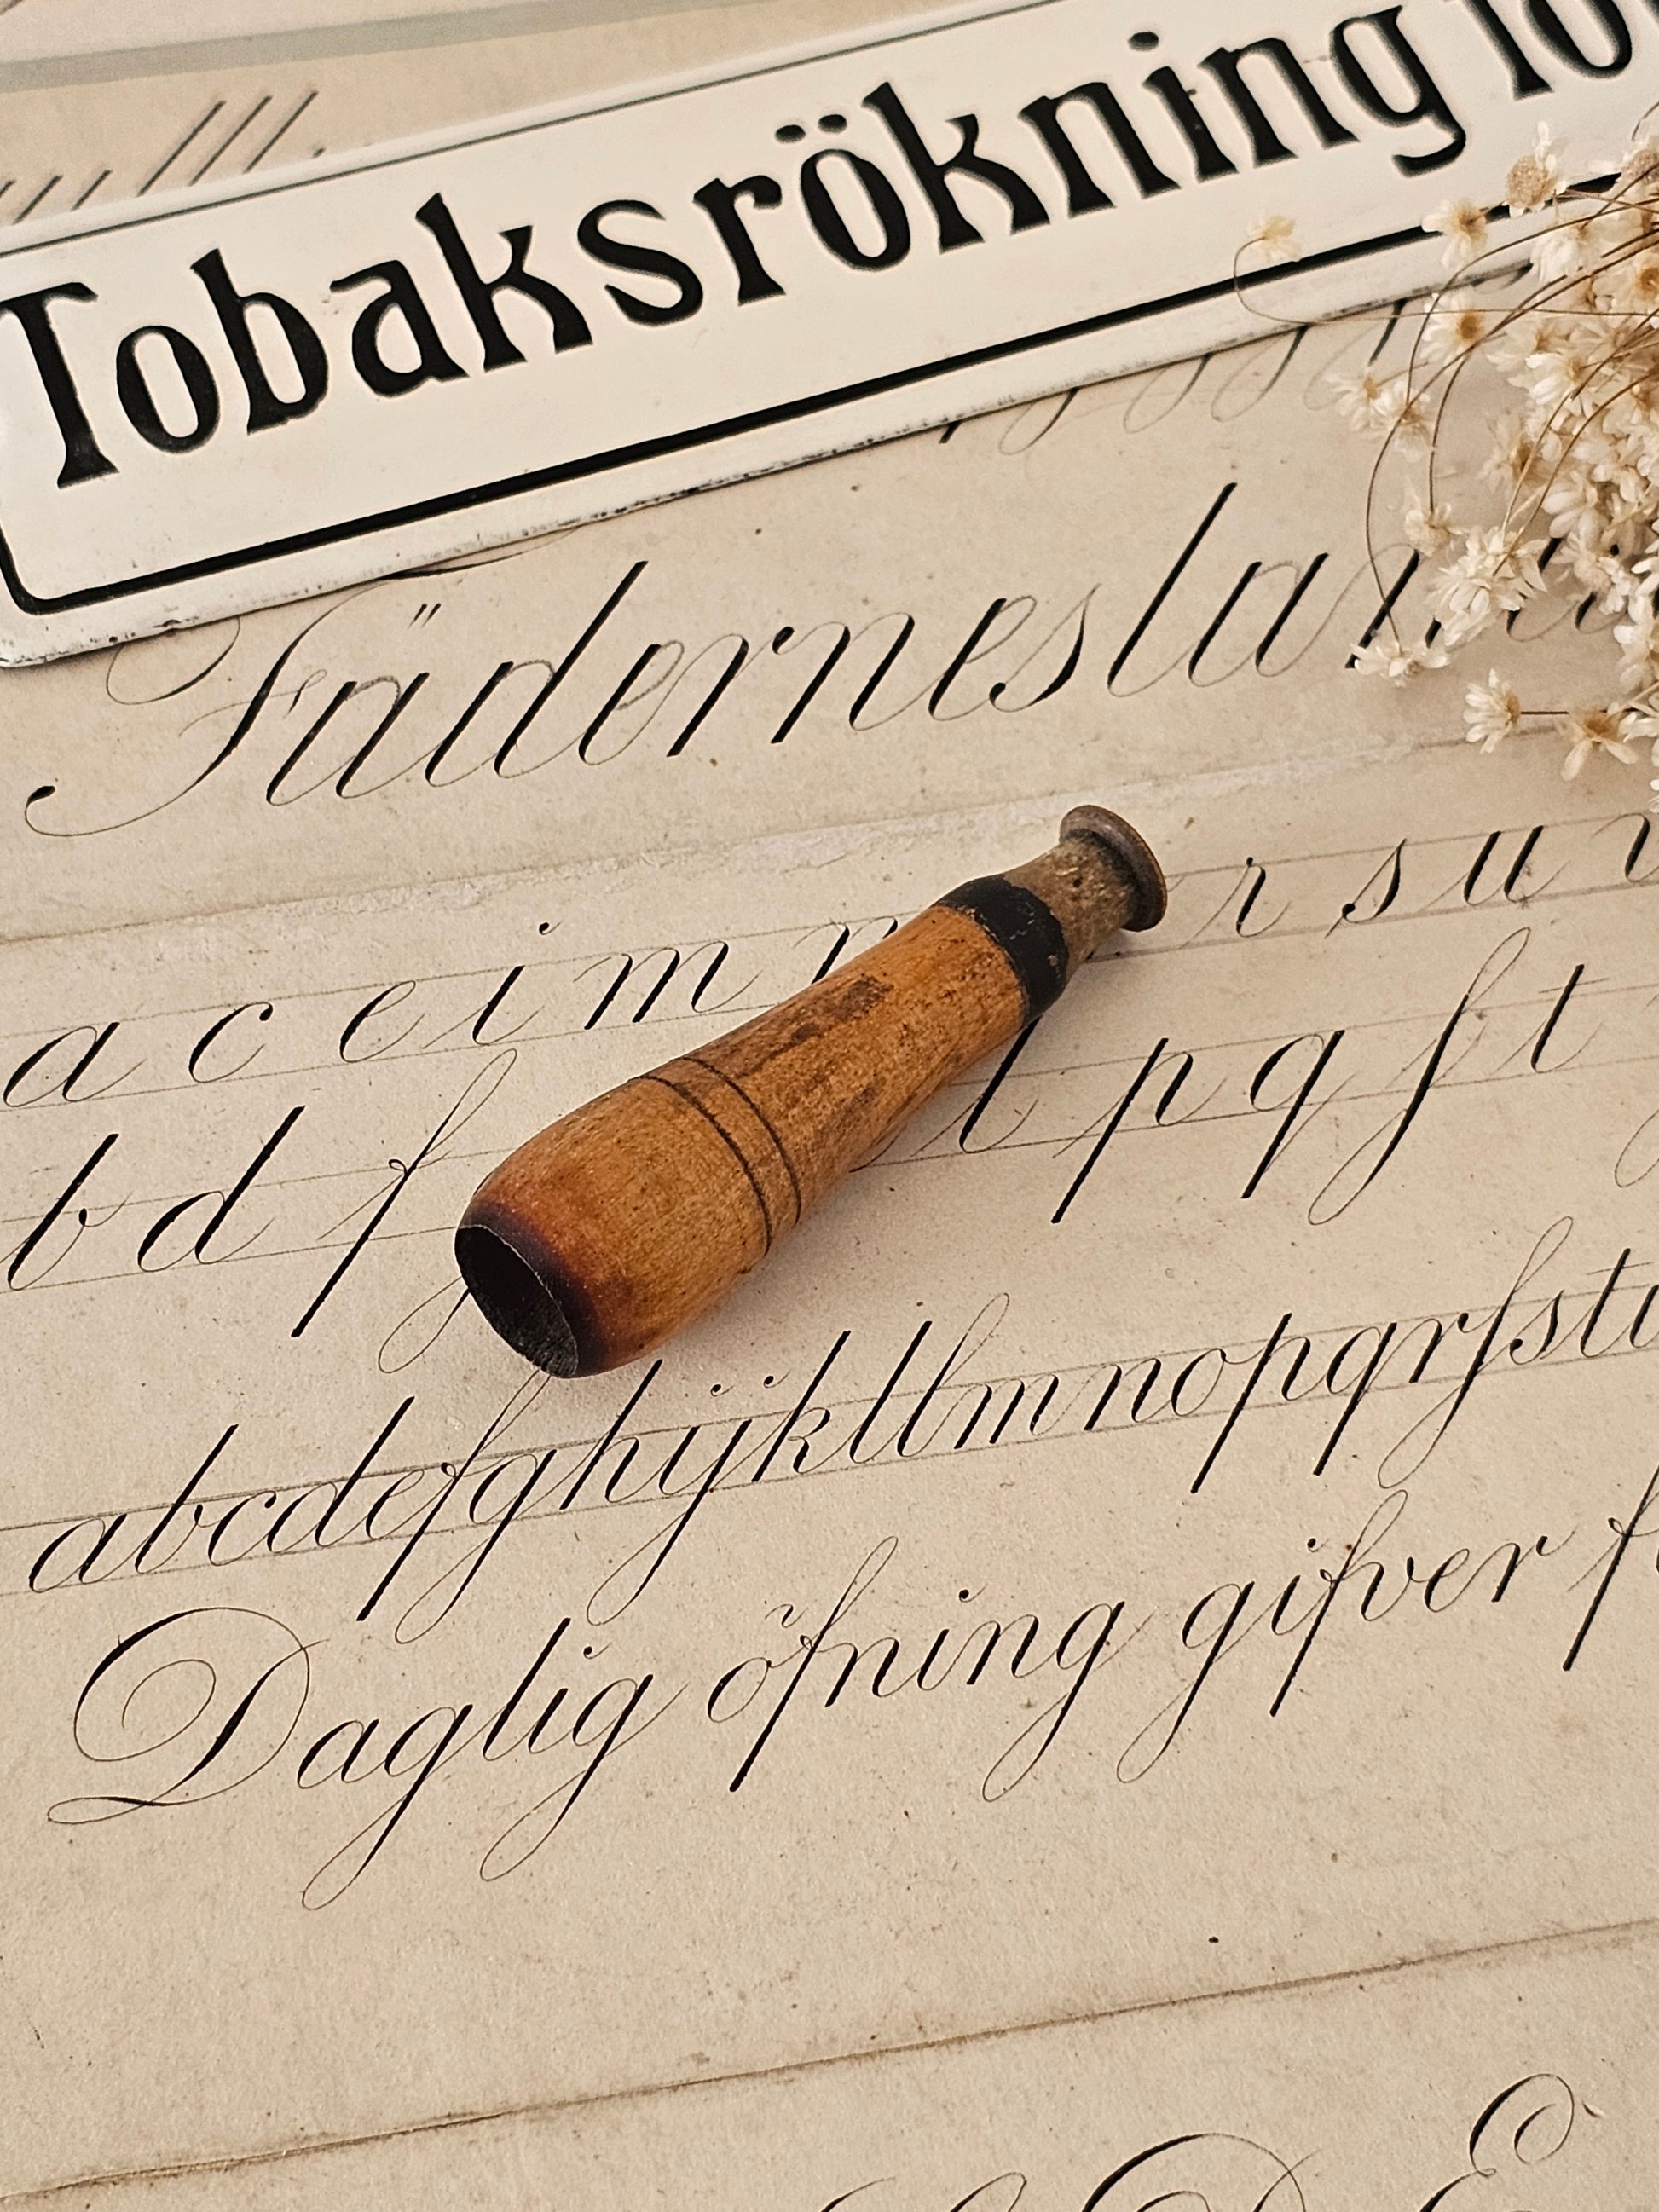 Tobaksrökning
Fädernesla
a c e i m r s u
b d f l p q f t
abcdefghijklllmnopqrſst
Daglig öfning gifver
D E